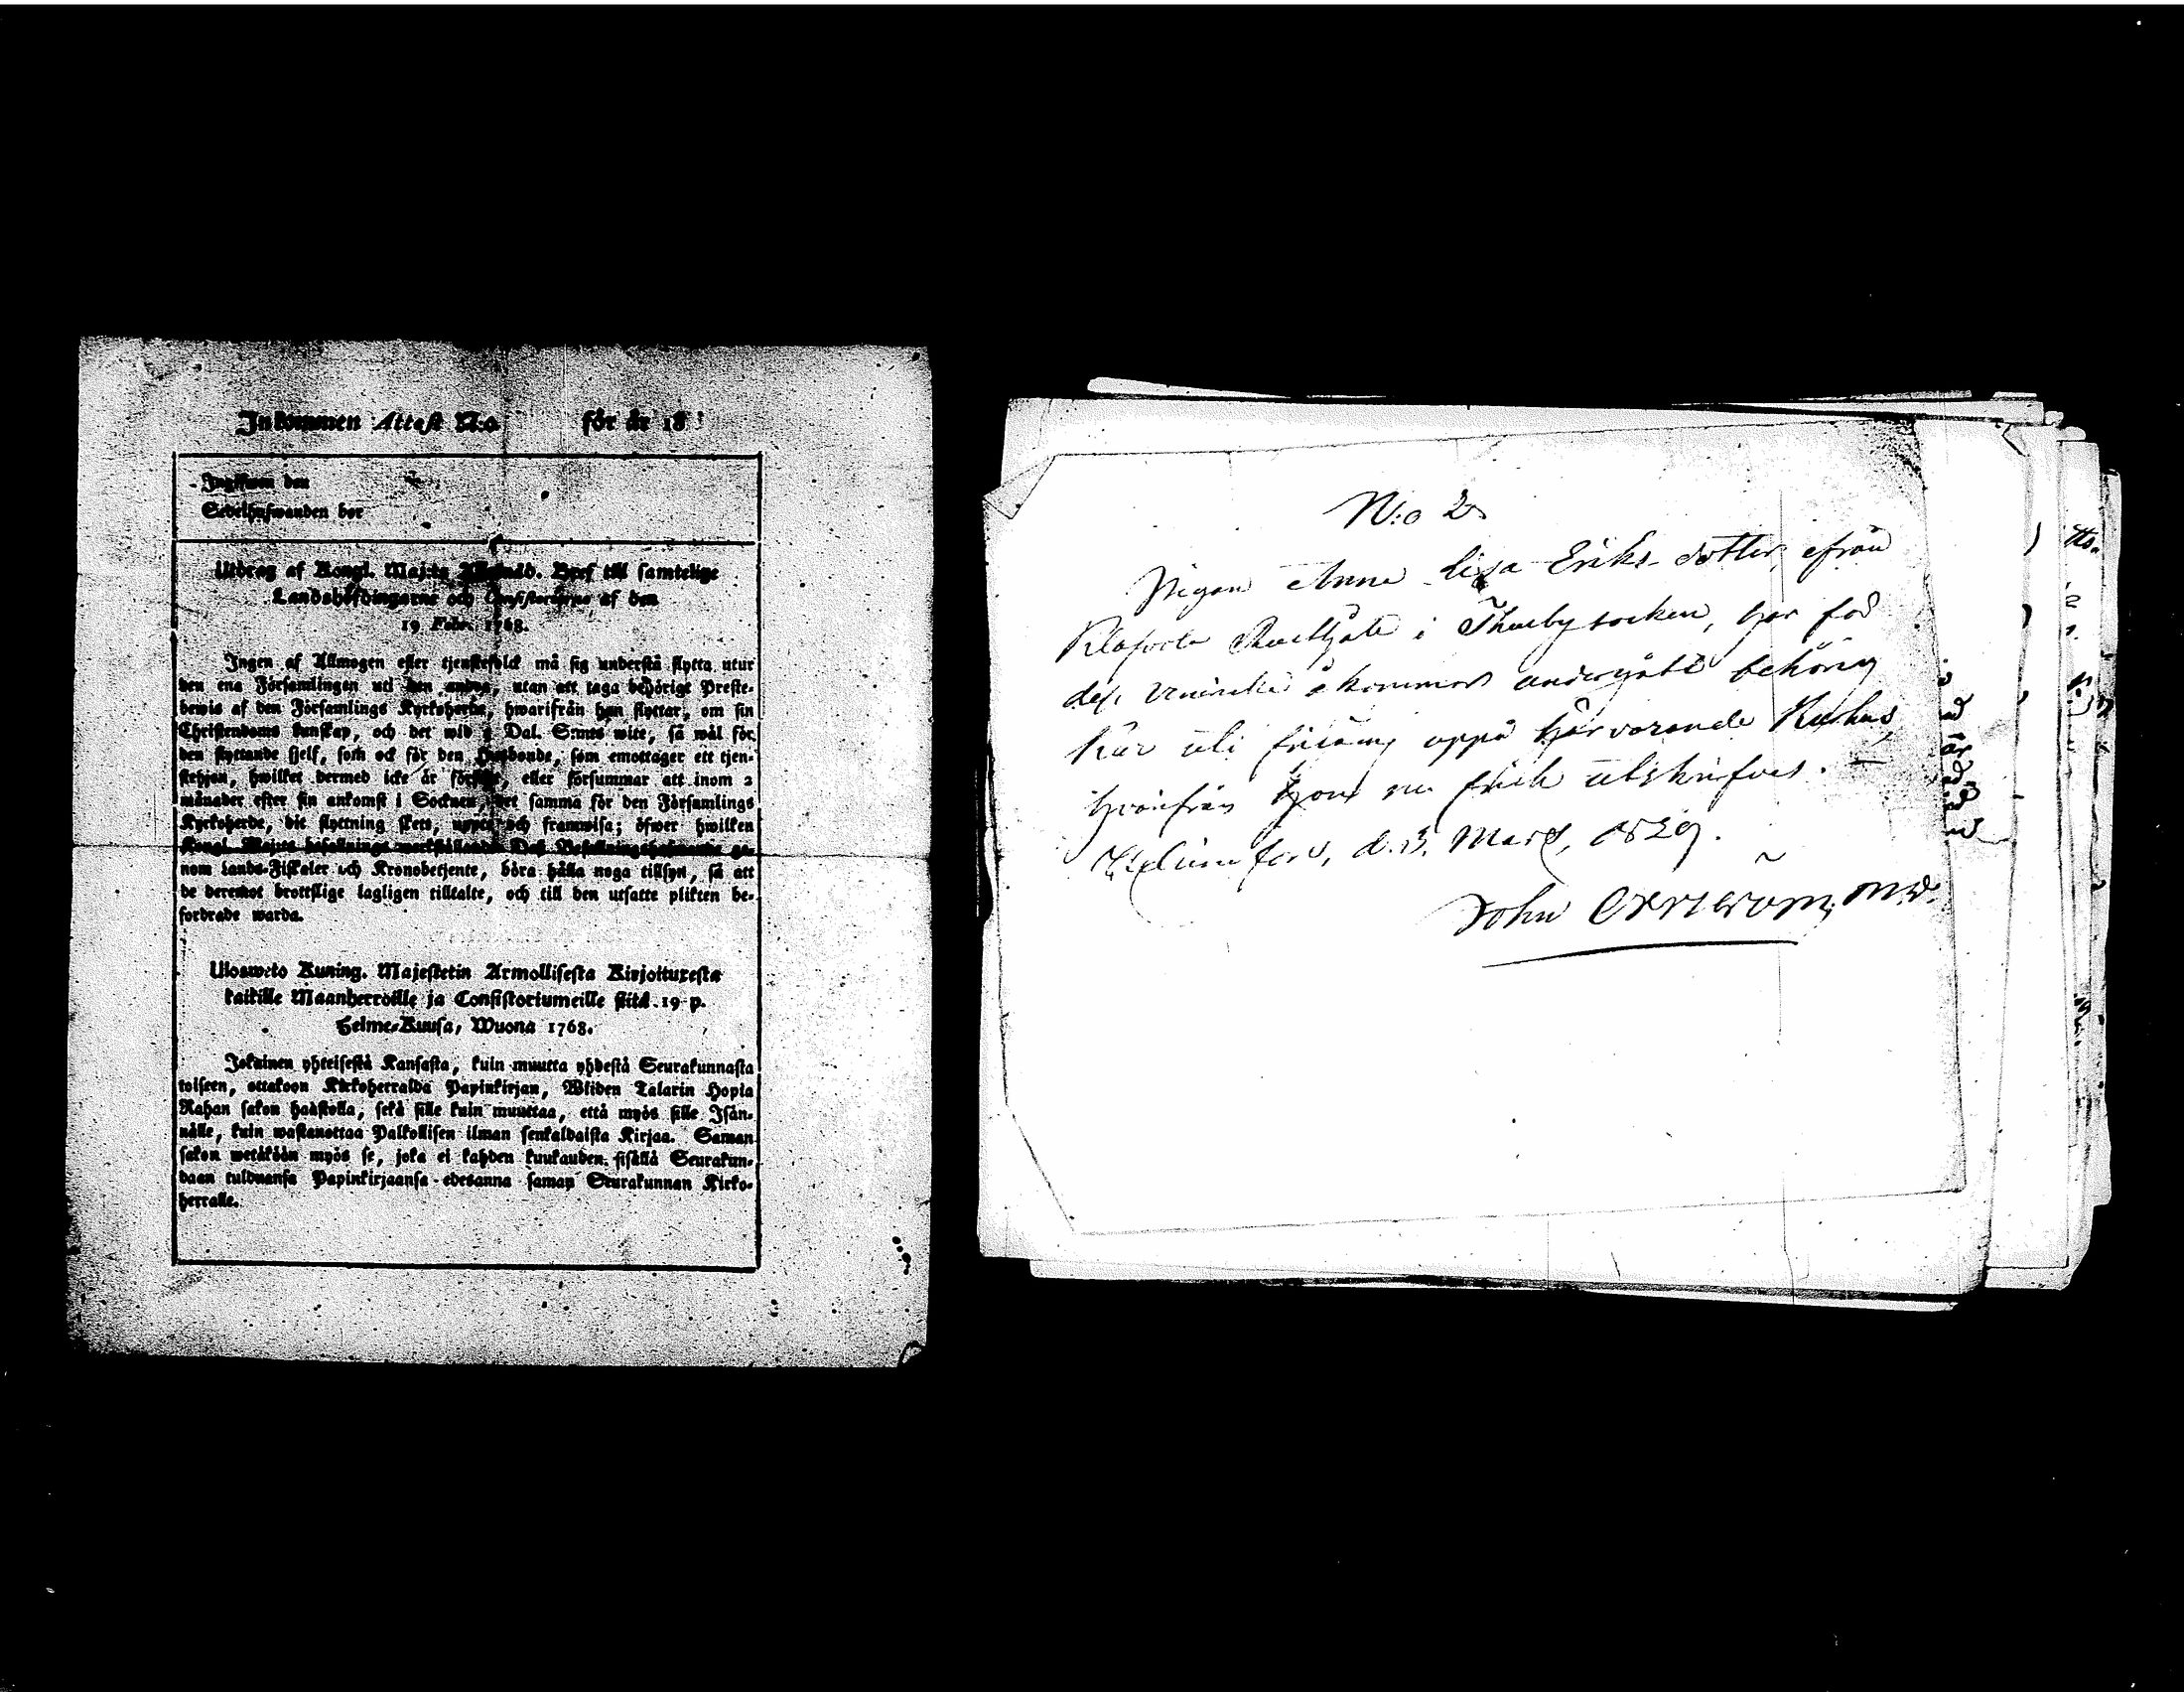 Inkommen Attest N:o för år 18
Ingifwen den
Sedelhafwanden bor
Utdrag af Kongl. Maj:ts Allernåd. Bref till samtelige
Landshöfdingarne och Consistorierne af den
19 Febr. 1768.
Ingen af Allmogen eller tjenstefolck må sig understå flytta utur
den ena Församlingen uti den andra, utan att taga behörige Preste-
bewis af den Församlings Kyrkoherde, hwarifrån han flyttar, om sin
Christendoms kunskap, och det wid 2 Dal. S:mts wite, så wäl för
den flyttande sjelf, som ock för den Husbonde, som emottager ett tjen-
stehjon, hwilket dermed icke är försedt, eller försummar att inom 2
månader efter sin ankomst i Socknen, det samma för den Församlings
Kyrkoherde, dit flyttning skett, uppte och framwisa; öfwer hwilken
Kongl. Maj:ts befallnings werkställande Des Befallningshafwande ge-
nom Lands-Fiskaler och Kronobetjente, böra hålla noga tillsyn, så att
de deremot brottslige lagligen tilltalte, och till den utsatte plikten be-
fordrade warda.
Ulosweto Kuning. Majestetin Armollisesta Kirjoituxesta
kaikille Maanherroille ja Consistoriumeille siitä 19 p.
Helme-Kuusa, Wuona 1768.
Jokainen yhteisestä Kansasta, kuin muutta yhdestä Seurakunnasta
toiseen, ottakoon Kirkoherralda Papinkirjan, Wiiden Talarin Hopia
Rahan sakon haastolla, sekä sille kuin muuttaa, että myös sille Isän-
nälle, kuin wastanottaa Palkollisen ilman senkaldaista Kirjaa. Saman
sakon wetäköön myös se, joka ei kahden kuukauden sisällä Seurakun-
daan tulduansa Papinkirjaansa edesanna saman Seurakunnan Kirko-
herralle.
N:o 2
Pigan Anna Lisa Eriks dotter, ifrån
i Thusby socken, har för
des Veneriska åkommor undergått behörig
Kur uti uppå härvarande Kurhus,
hvarifrån hon nu frisk utskrifves.
Helsingfors, d. 13. Mars, 1829.
John m.d.